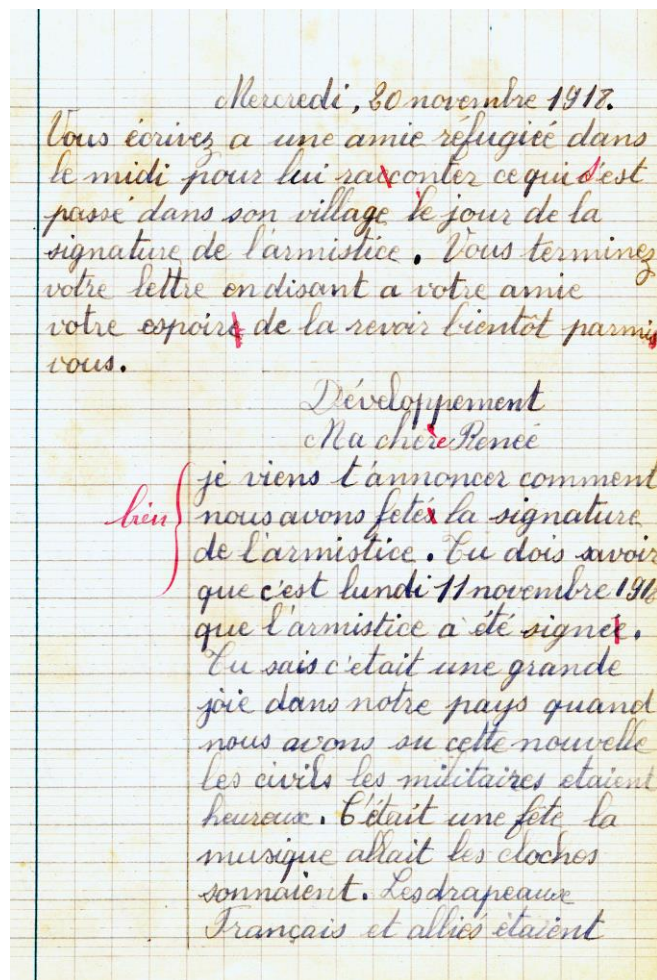 Mercredi, 20 novembre 1918.
Vous écrivez a une amie réfugiée dans
le midi pour lui racconter ce qui s'est
passé dans son village le jour de la
signature de l'armistice. Vous terminez
votre lettre en disant a votre amie
votre espoire de la revoir bientôt parmis
vous.
Développement
Ma chère Renée
je viens t'annoncer comment
bien
nous avons fetés la signature
de l'armistice. Tu dois savoir
que c'est lundi 11 novembre 1918
que l'armistice a été signée.
Tu sais c'etait une grande
joie dans notre pays quand
nous avons su cette nouvelle
les civils les militaires etaient
heureux. C'était une fête la
musique allait les cloches
sonnaient. Les drapeaux
Français et alliés étaient